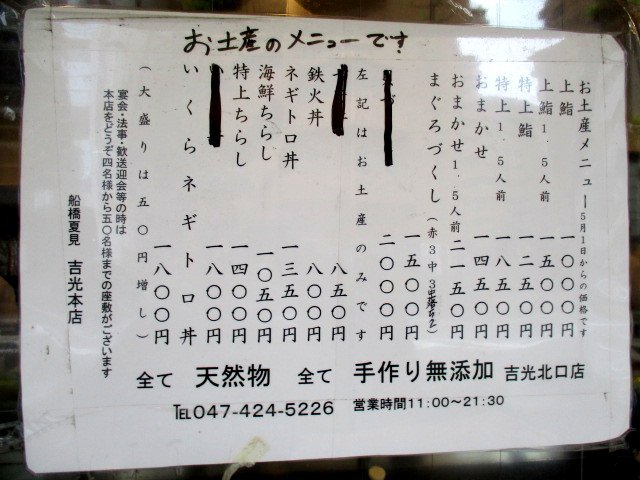 お土産のメニューです
お土産メニュー 5月1日からの価格です
上鮨 一〇〇〇円
上鮨1.5人前 一五〇〇円
特上鮨 一二五〇円
特上1.5人前 一八五〇円
おまかせ 一四五〇円
おまかせ1.5人前 二一五〇円
まぐろづくし(赤3中3 2) 一五〇〇円
二〇〇〇円
左記はお土産のみです
八五〇円
鉄火丼 八〇〇円
ネギトロ丼 一三五〇円
海鮮ちらし 一〇五〇円
特上ちらし 一四〇〇円
一八〇〇円
いくらネギトロ丼 一八〇〇円
(大盛りは五〇円増し)
宴会・法事・歓送迎会等の時は
本店をどうぞ四名様から五〇名様までの座敷がございます
船橋夏見 吉光本店
全て 天然物 全て 手作り無添加 吉光北口店
TEL047-424-5226 営業時間11:00～21:30